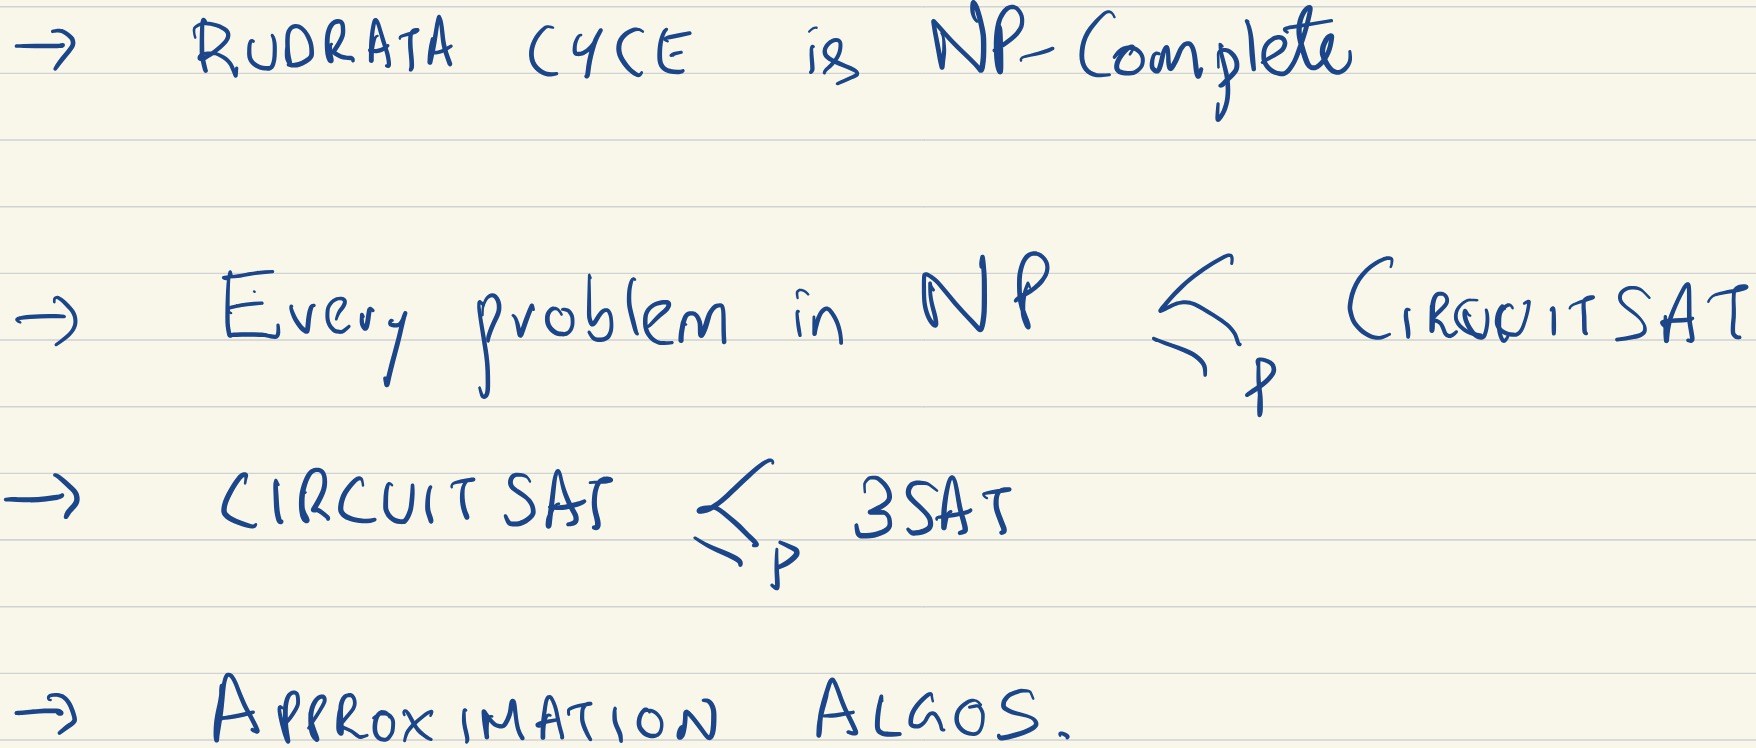 → RUDRATA CYCE is NP-Complete
→ Every problem in NP ≤p CIRCUITSAT
→ CIRCUIT SAT ≤p 3SAT
→ APPROXIMATION ALGOS.